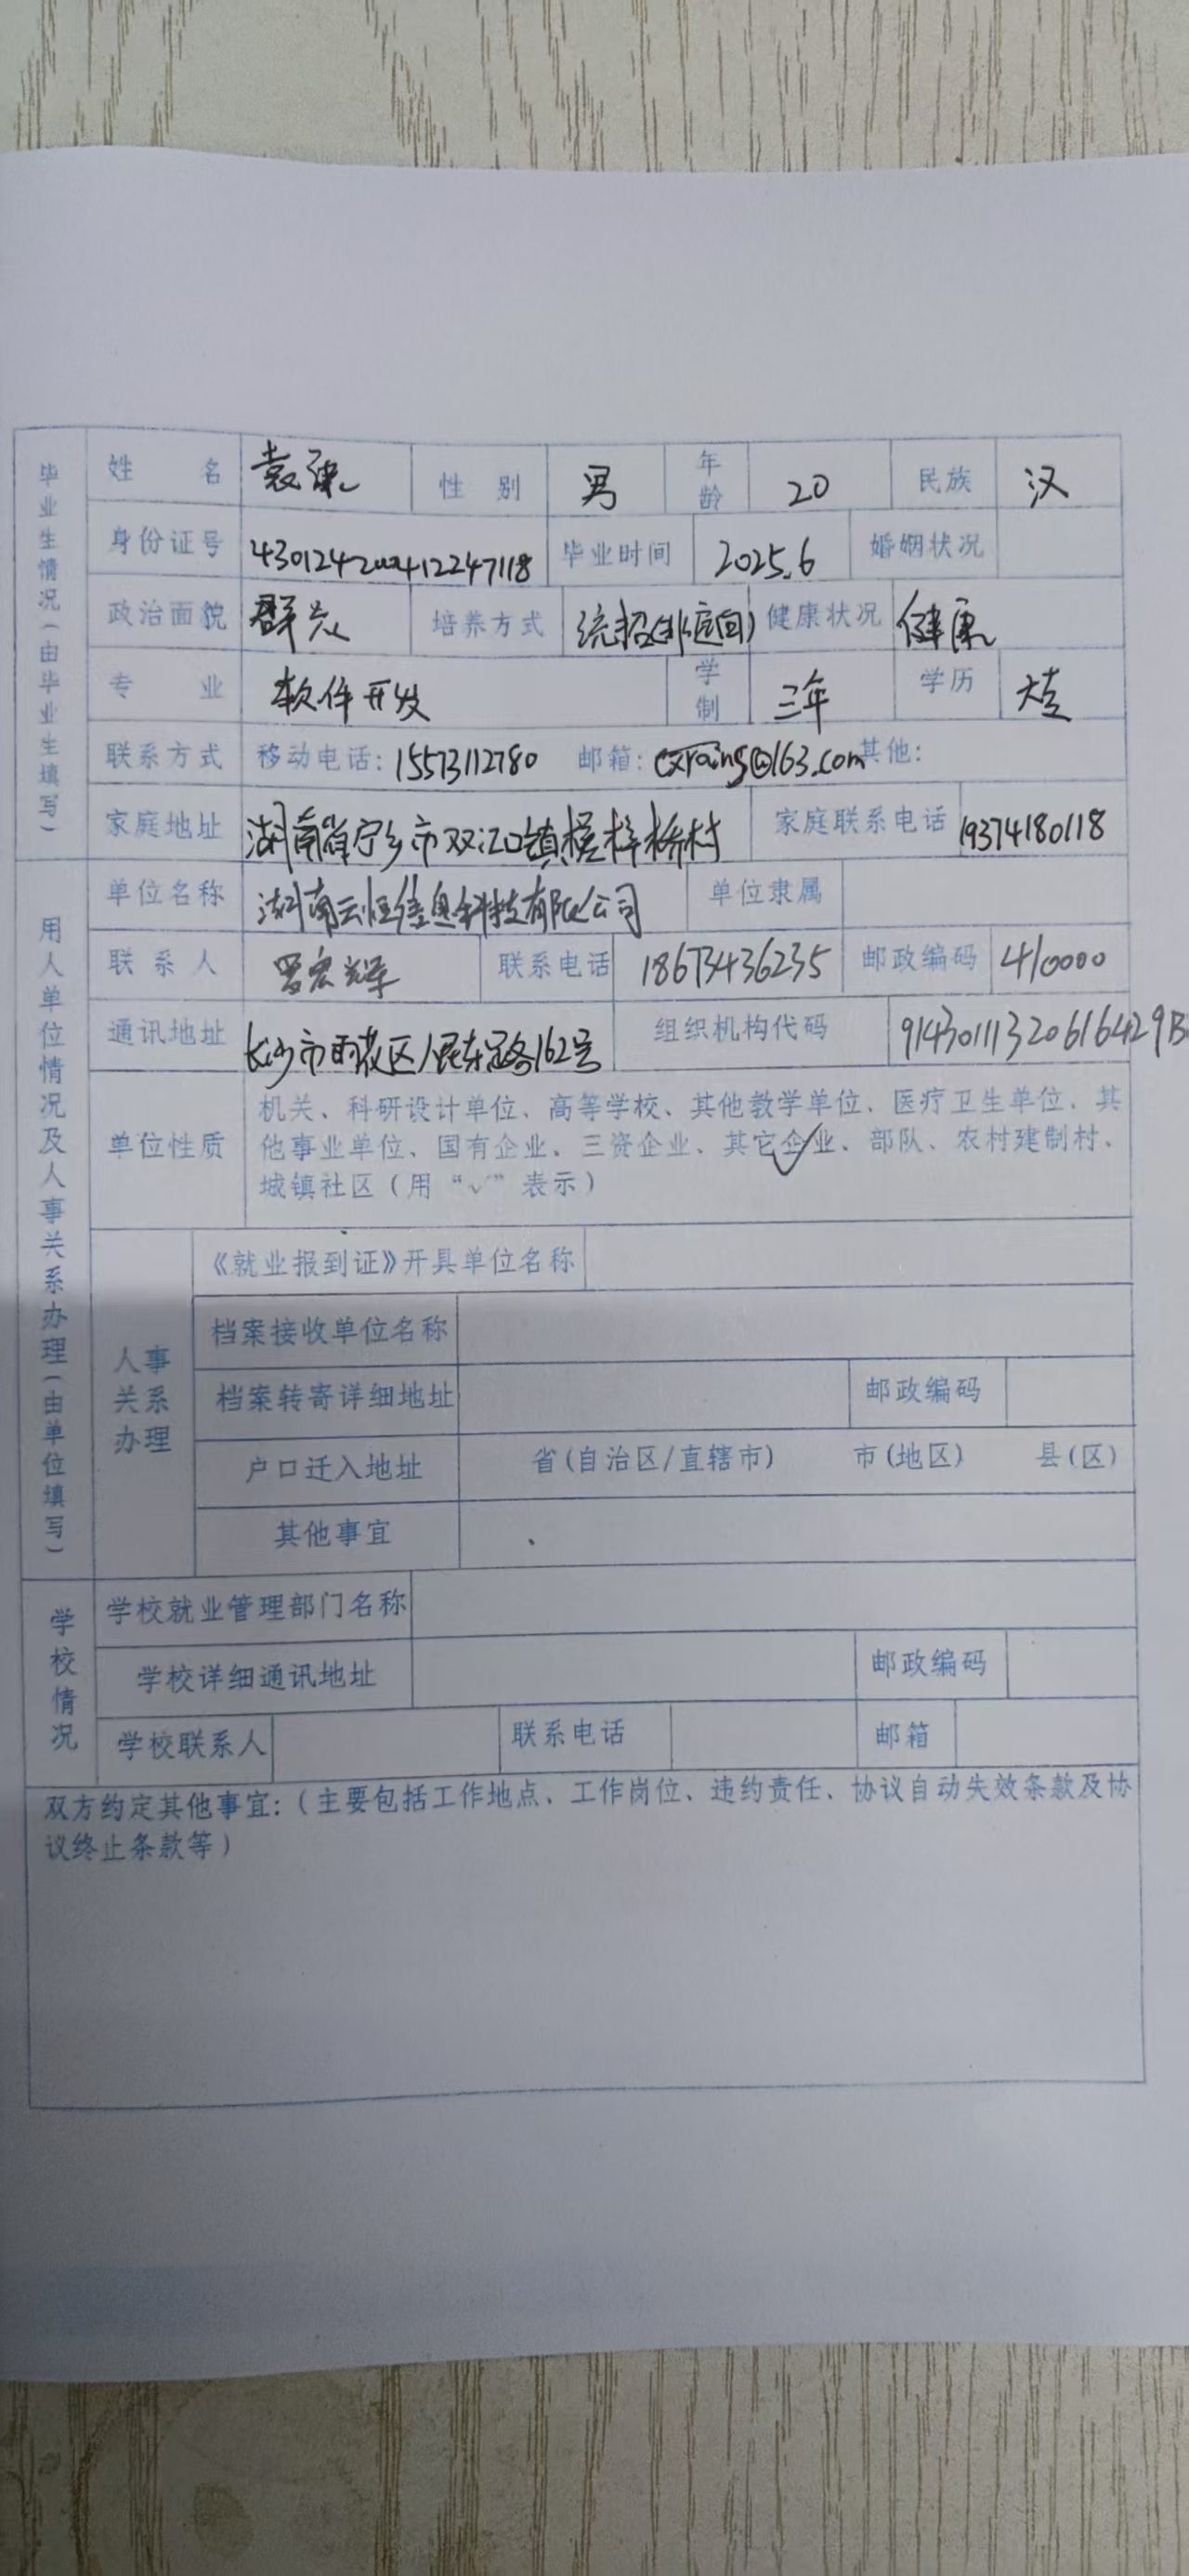 毕业生情况(由毕业生填写)
姓 名 袁 性 别 男 年龄 20 民族 汉
身份证号 430124200412247118 毕业时间 2025.6 婚姻状况
政治面貌 群众 培养方式 统招(非定向) 健康状况 健康
专 业 软件开发 学制 三年 学历 大专
联系方式 移动电话: 15573112780 邮箱: cxraing@163.com 其他:
家庭地址 湖南省宁乡市双江口镇槎梓桥村 家庭联系电话 19374180118
用人单位情况及人事关系办理(由单位填写)
单位名称 湖南云恒信息科技有限公司 单位隶属
联 系 人 罗宏辉 联系电话 18673436235 邮政编码 410000
通讯地址 长沙市雨花区人民东路162号 组织机构代码 91430111320616429B
单位性质
机关、科研设计单位、高等学校、其他教学单位、医疗卫生单位、其
他事业单位、国有企业、三资企业、其它企业、部队、农村建制村、
城镇社区(用“√”表示)
人事关系办理
《就业报到证》开具单位名称
档案接收单位名称
档案转寄详细地址 邮政编码
户口迁入地址 省(自治区/直辖市) 市(地区) 县(区)
其他事宜
学校情况
学校就业管理部门名称
学校详细通讯地址 邮政编码
学校联系人 联系电话 邮箱
双方约定其他事宜:(主要包括工作地点、工作岗位、违约责任、协议自动失效条款及协
议终止条款等)